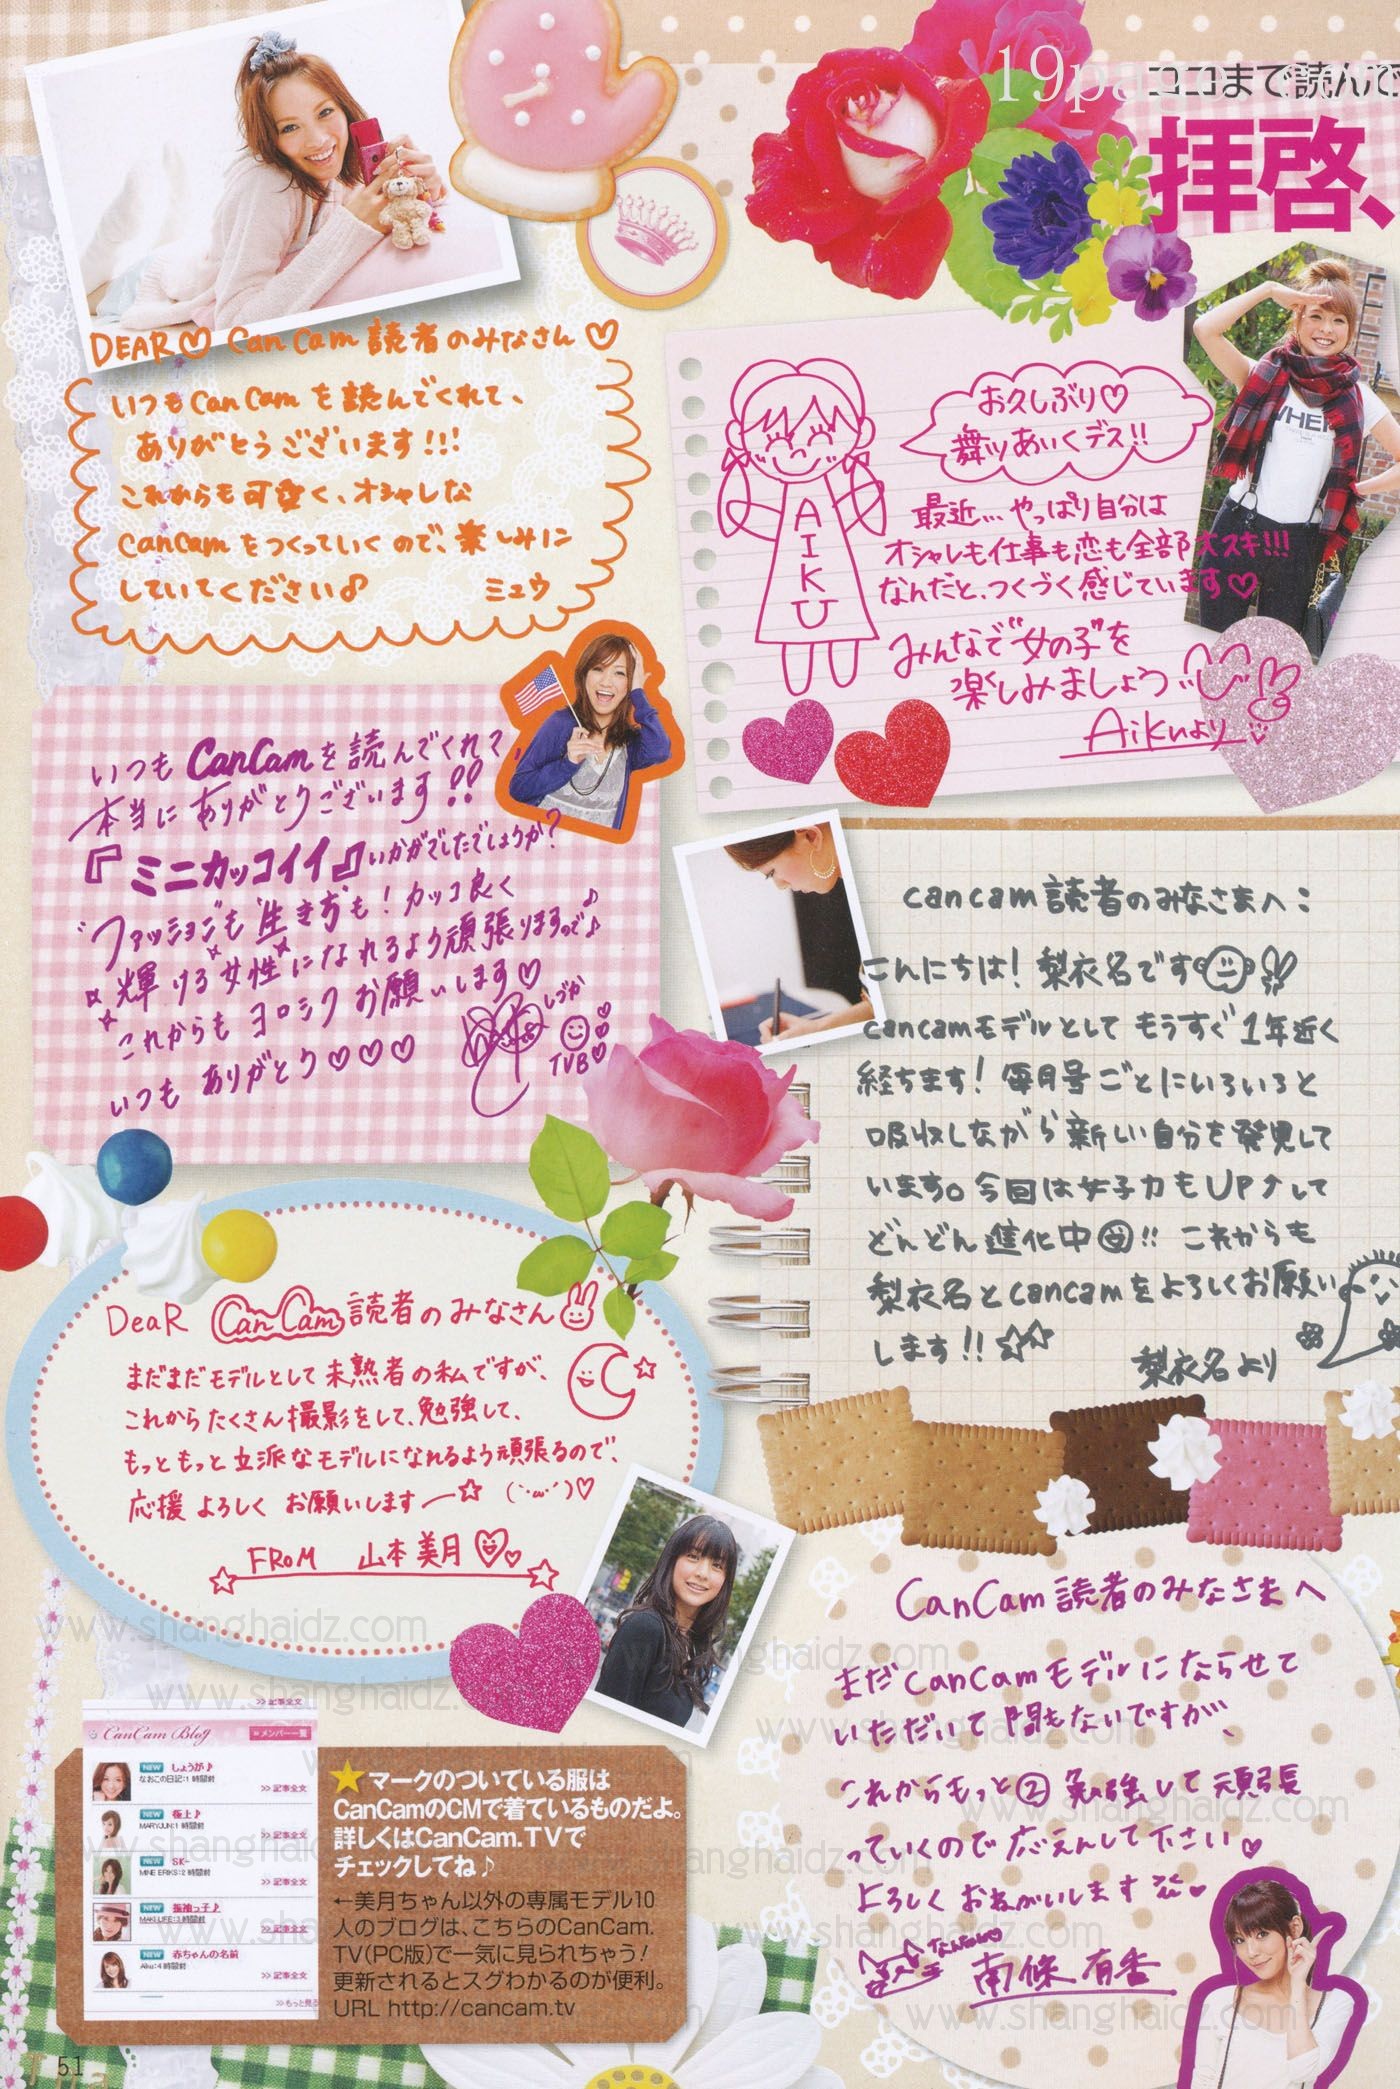 19page.com
ココまで読んで
拝啓、
DEAR♡ CanCam読者のみなさん♡
いつもCanCamを読んでくれて、
ありがとうございます!!!
これからも可愛く、オシャレな
CanCamをつくっていくので、楽しみに
していてください♪ ミュウ
お久しぶり♡
舞ツあいくデス!!
AIKU
最近… やっぱり自分は
オシャレも仕事も恋も全部大スキ!!!
なんだと、つくづく感じています♡
みんなで"女の子"を
楽しみましょう
Aikuより
WHE
いつもCanCamを読んでくれて、
本当にありがとうございます!!
『ミニカッコイイ』いかがでしたでしょうか?
ファッションも生き方も!カッコ良く
輝ける"女性"になれるよう頑張りますので♪
これからもヨロシクお願いします♡
いつもありがとう♡♡♡
しづか
TVB♡
cancam読者のみなさまへ:
こんにちは!梨衣名です
cancamモデルとしてもうすぐ1年近く
経ちます!毎月号ごとにいろいろと
吸収しながら新しい自分を発見して
います。今回は女子力もUP↑して
どんどん進化中!! これからも
梨衣名とcancamをよろしくお願い
します!!☆☆
梨衣名より
DeaR CanCam読者のみなさん
まだまだモデルとして未熟者の私ですが、
これからたくさん撮影をして、勉強して、
もっともっと立派なモデルになれるよう頑張るので、
応援よろしくお願いします―☆ (´・ω・`)♡
FROM 山本美月
CanCam読者のみなさまへ
まだCanCamモデルにならせて
いただいて間もないですが、
これからもっと② 勉強して頑張
っていくので応えんして下さい♥
よろしくおねがいします
南條有香
>> 記事全文
CanCam Blog
>>メンバー一覧
NEW しょうが♪
なおこの日記:1 時間前
>> 記事全文
NEW 極上♪
MARYJUN:1 時間前
>> 記事全文
NEW SK-
MINE ERIKS:2 時間前
>> 記事全文
NEW 振袖っ子♪
MAKI LIFE:3 時間前
>> 記事全文
NEW 赤ちゃんの名前
Aiku:4 時間前
>> 記事全文
>>もっと見る
★マークのついている服は
CanCamのCMで着ているものだよ。
詳しくはCanCam.TVで
チェックしてね♪
←美月ちゃん以外の専属モデル10
人のブログは、こちらのCanCam.
TV(PC版)で一気に見られちゃう!
更新されるとスグわかるのが便利。
URL http://cancam.tv
51
www.shanghaidz.com